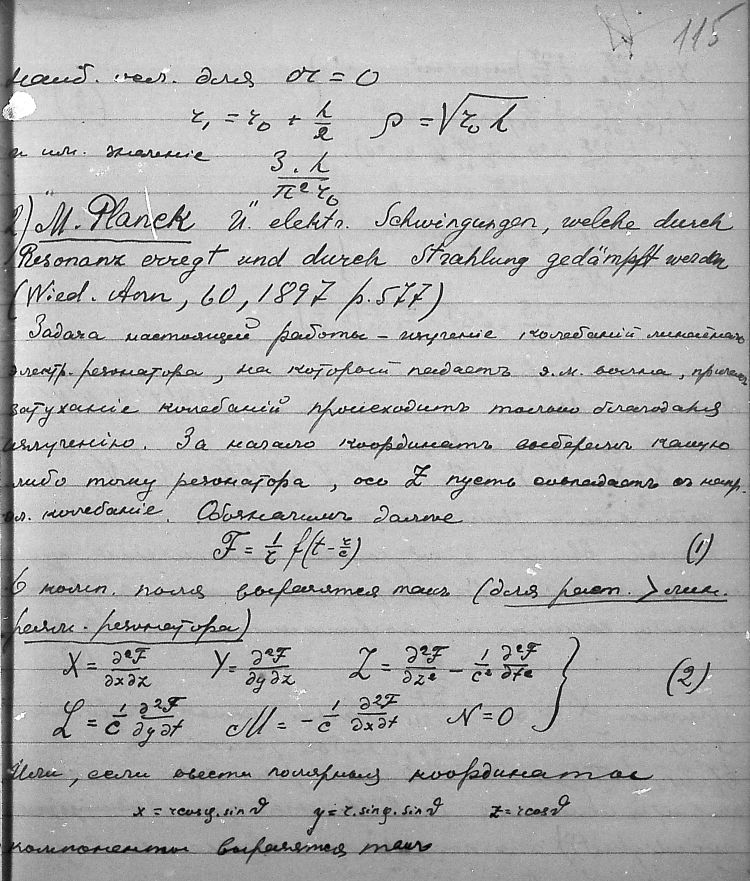 115
наиб. вел. для σι = 0
r₁ = r₀ + h/2 ρ = √(r₀ h)
и им. значеніе 3·h/(π² r₀)
2) M. Planck "Ü. elektr. Schwingungen, welche durch
Resonanz erregt und durch Strahlung gedämpft werden
(Wied. Ann, 60, 1897 p. 577)
Задача настоящей работы – изученіе колебаній линейнаго
электр. резонатора, на который падаетъ э.м. волна, причемъ
затуханіе колебаній происходитъ только благодаря
излученію. За начало координатъ выберемъ какую
либо точку резонатора, ось Z пусть совпадаетъ съ напр.
эл. колебаніе. Обозначимъ далѣе
F = 1/r f(t - r/c) (1)
6 комп. поля выразятся такъ (для раст. > лин.
разм. резонатора)
X = ∂²F/∂x∂z Y = ∂²F/∂y∂z Z = ∂²F/∂z² - 1/c² ∂²F/∂t²
L = 1/c ∂²F/∂y∂t M = - 1/c ∂²F/∂x∂t N = 0 } (2)
Или, если ввести полярныя координаты
x = r cosφ. sin ϑ y = r. sinφ. sin ϑ z = r cos ϑ
компоненты выразятся такъ